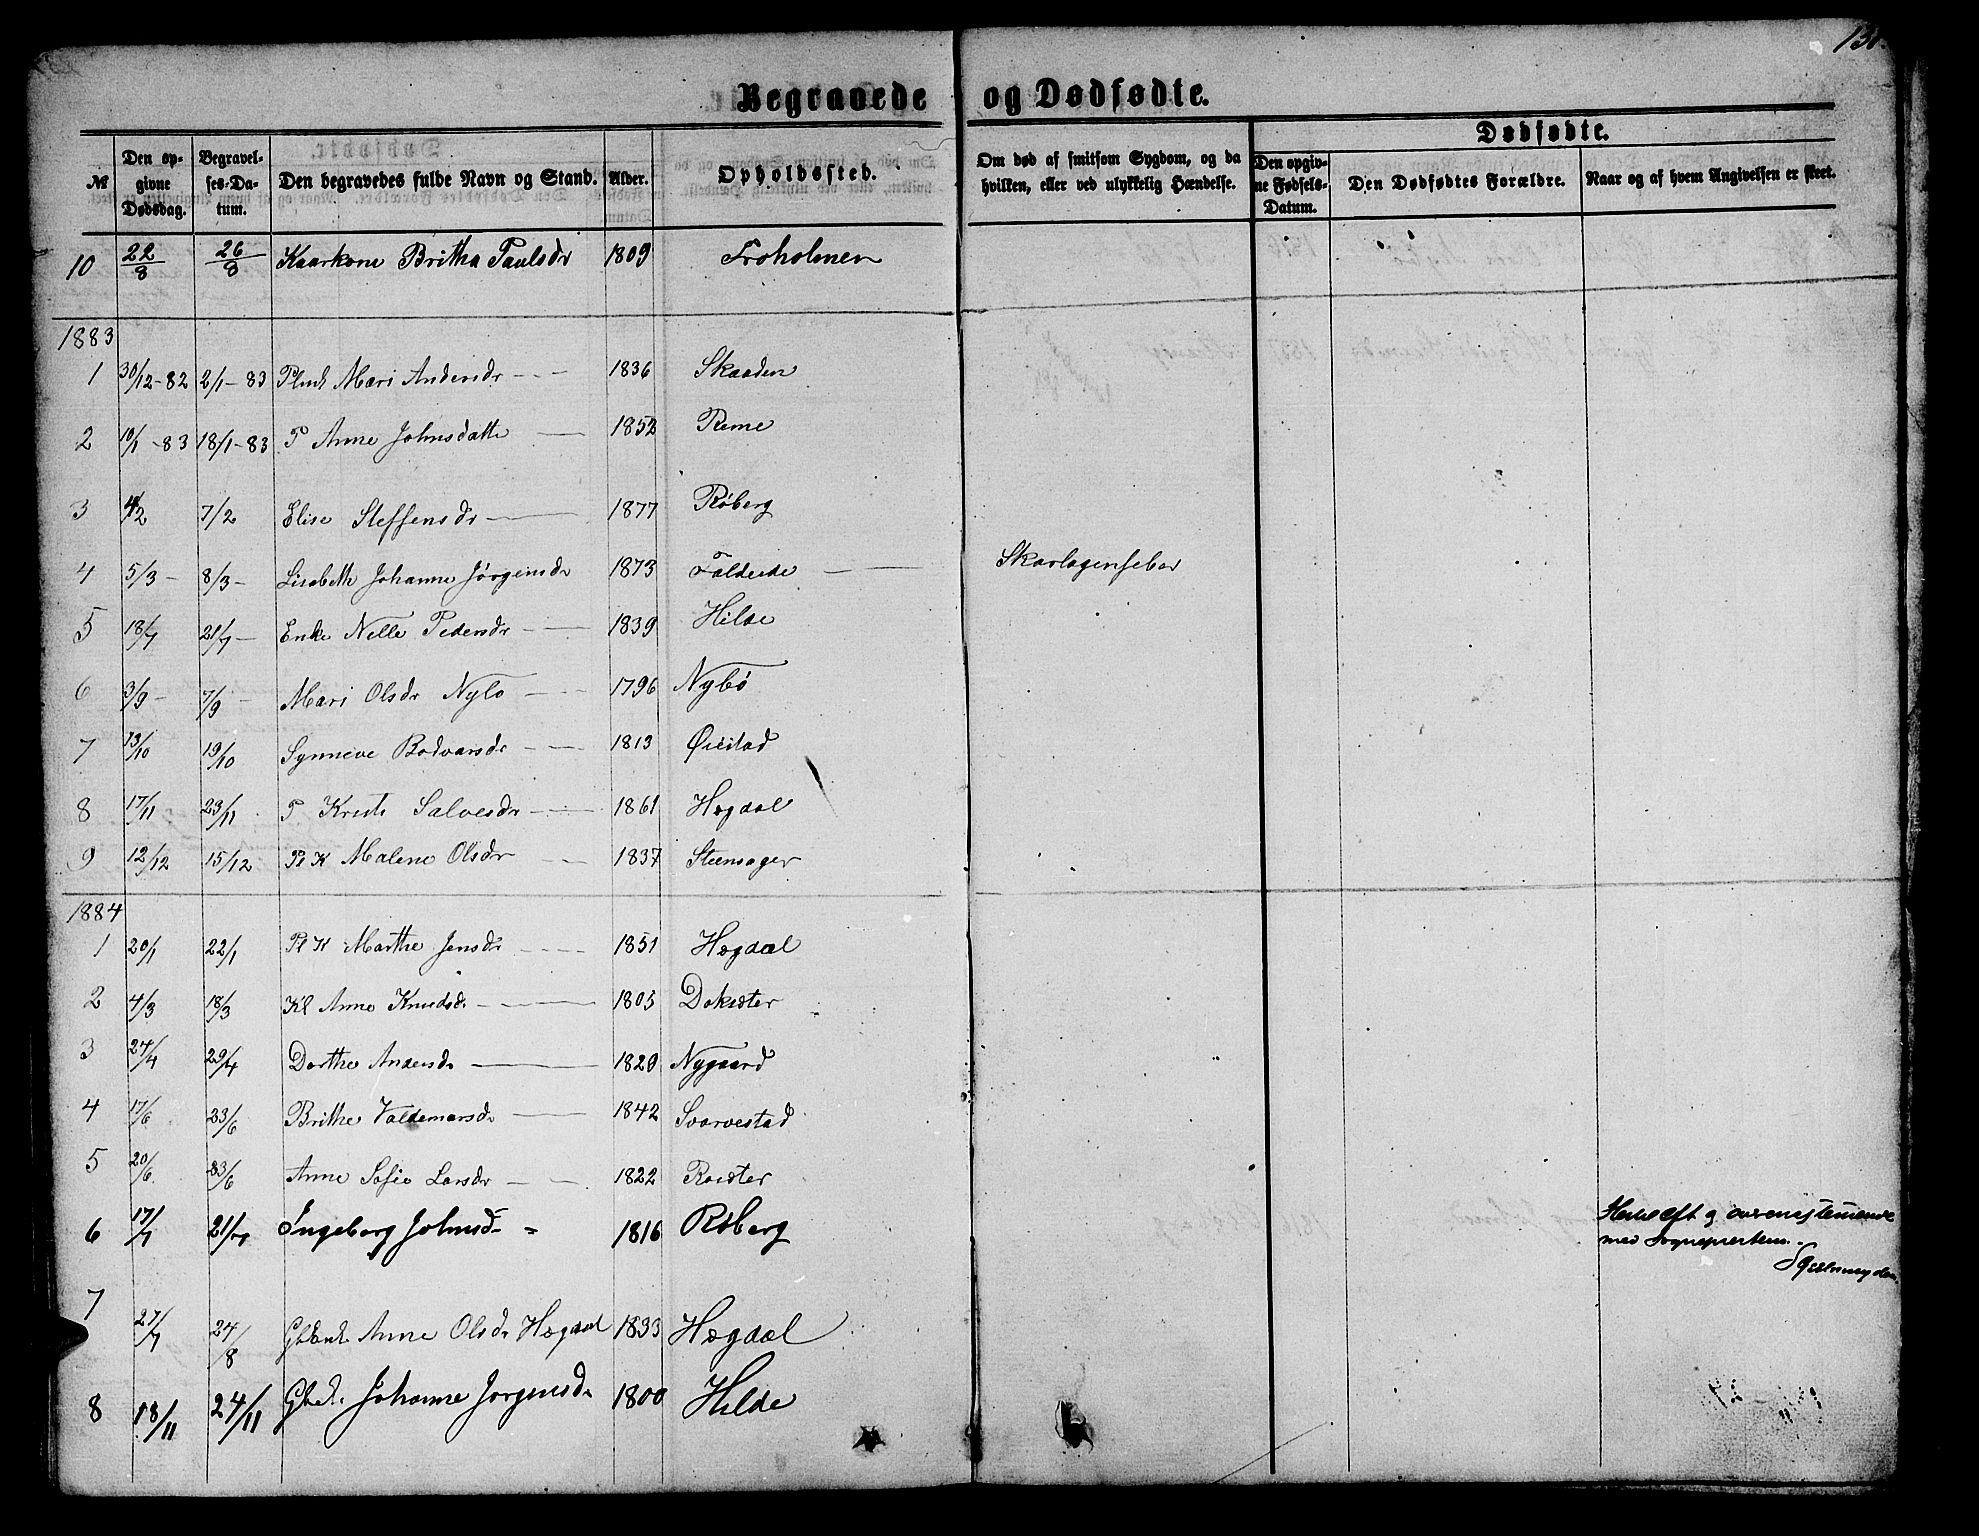 Begravede og Dødfødte.
Dødfødte.
№
Den op-
givne
Dødsdag.
Begravel-
ses-Da-
tum.
Den begravedes fulde Navn og Stand.
Alder.
Opholdssted.
Om død af smitsom Sygdom, og da
hvilken, eller ved ulykkelig Hændelse.
Den opgiv-
ne Fødsels-
Datum.
Den Dødfødtes Forældre.
Naar og af hvem Angivelsen er skeet.
10 22/8 26/8 Kaarkone Britha Paulsdr 1809 Froholmen
1883
1 30/12-82 2/1-83 Mari Andersdr 1836 Skaaden
2 10/1-83 18/1-83 P Anne Johnsdatte 1852 Reme
3 4/2 7/2 Elise Steffensdr 1877 Røberg
4 5/3 - 8/3 - Lisabeth Johanne Jörgensdr 1873 Foldeide Skarlagensfeber
5 18/7 21/7 - Enke Nelle Pedersdr 1839 Hilde
6 3/9 - 7/9 - Mari Olsdr Nybo 1796 Nybö
7 13/10 19/10 Synneve Bodvarsdr 1813 Øiestad
8 17/11 23/11 P Kristi Salvesdr 1861 Hogdal
9 12/12 15/12 Pl K Malene Olsdr 1837 Steensager
1884
1 20/1 22/1 Pl K Marthe Jensdr 1851 Hogdal
2 4/3 18/3 Kl Anne Knudsdr 1805 Doksæter
3 24/4 29/4 Dorthe Andersdr 1829 Nygaard
4 17/6 23/6 Brithe Valdemarsdr 1842 Svarvestad
5 20/6 23/6 Anne Sofie Larsdr 1822
6 17/7 21/7 Ingeborg Johnsd 1816 Røberg
og overenstemende
med Sognepresten.
7 27/7 24/8 Anne Olsdr Hogdal 1833 Hogdal
8 18/11 24/11 Johanne Jorgensdr 1800 Hilde